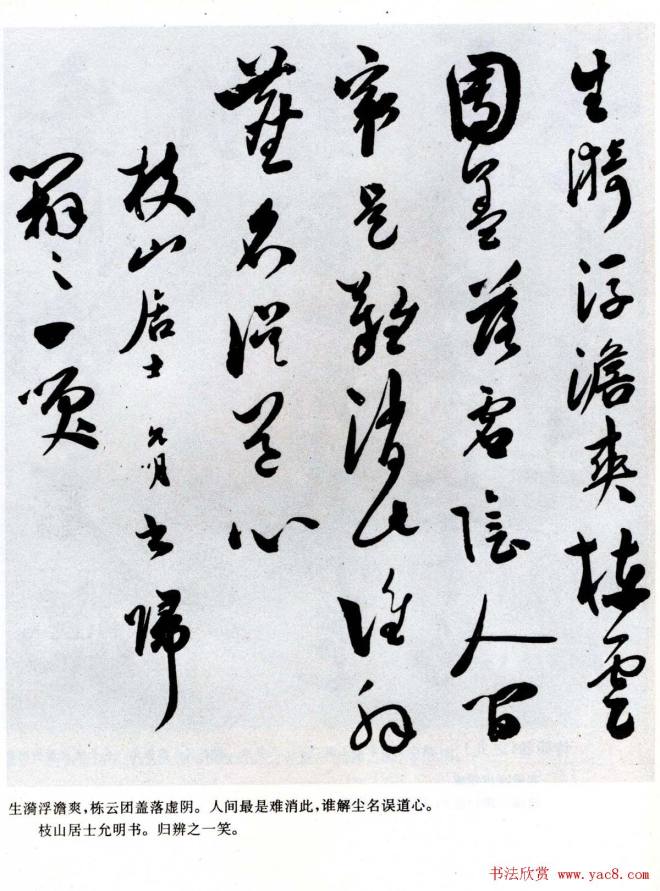 生漪浮澹爽棟雲
團蓋落虛陰人間
最是難消此誰解
塵名誤道心
枝山居士允明書歸
辨之一笑
生漪浮澹爽，栋云团盖落虚阴。人间最是难消此，谁解尘名误道心。
枝山居士允明书。归辨之一笑。
书法欣赏 www.yac8.com